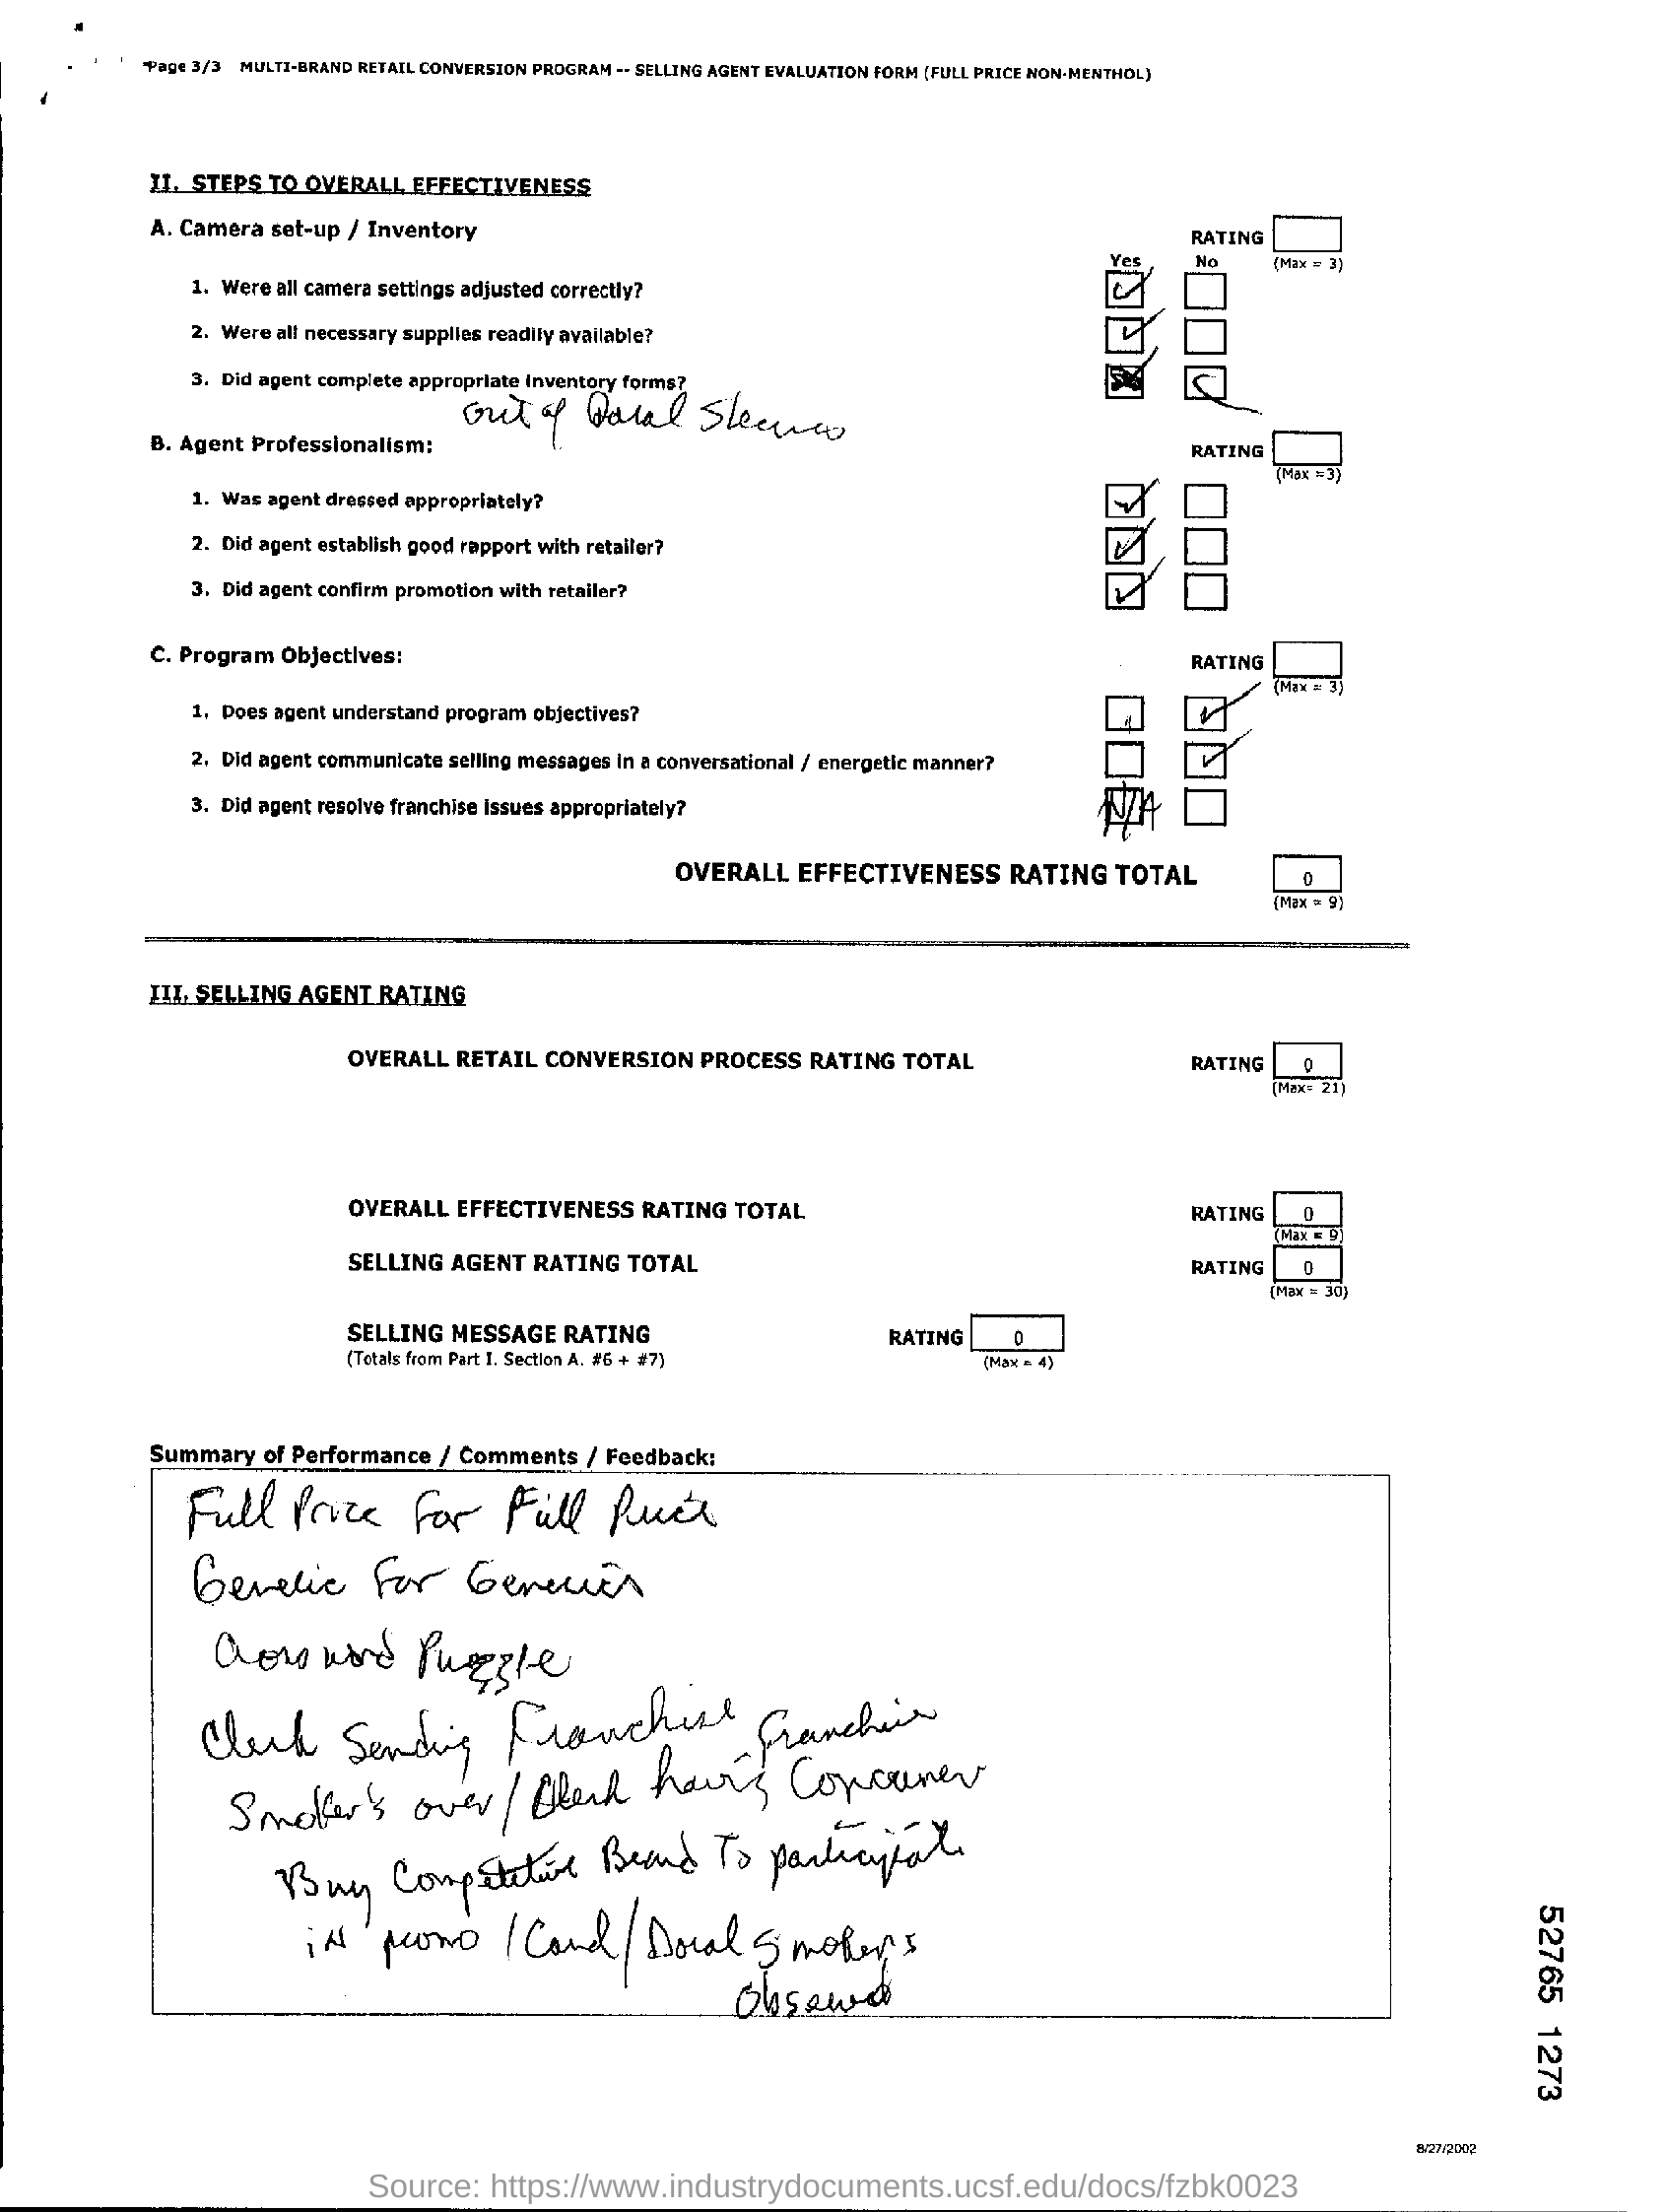 Page 3/3 MULTI-BRAND RETAIL CONVERSION PROGRAM -- SELLING AGENT EVALUATION FORM (FULL PRICE NON-MENTHOL)
II. STEPS TO OVERALL EFFECTIVENESS
A. Camera set-up / Inventory
RATING
Yes No (Max = 3)
1. Were all camera settings adjusted correctly?
2. Were all necessary supplies readily available?
3. Did agent complete appropriate inventory forms?
out of Doral
B. Agent Professionalism:
RATING
(Max =3)
1. Was agent dressed appropriately?
2. Did agent establish good rapport with retailer?
3. Did agent confirm promotion with retailer?
C. Program Objectives:
RATING
(Max = 3)
1. Does agent understand program objectives?
2. Did agent communicate selling messages in a conversational / energetic manner?
3. Did agent resolve franchise issues appropriately? N/A
OVERALL EFFECTIVENESS RATING TOTAL 0
(Max = 9)
III. SELLING AGENT RATING
OVERALL RETAIL CONVERSION PROCESS RATING TOTAL RATING 0
(Max= 21)
OVERALL EFFECTIVENESS RATING TOTAL RATING 0
(Max = 9)
SELLING AGENT RATING TOTAL RATING 0
(Max = 30)
SELLING MESSAGE RATING RATING 0
(Totals from Part I. Section A. #6 + #7) (Max = 4)
Summary of Performance / Comments / Feedback:
Full Price For Full Price
Generic For Generics
Crossword Puzzle
Clerk Sending Franchise Franchise
Smoker's over/Clerk having Consumer
Buy Competitive Brand To participate
in promo / Camel / Doral Smokers
Observed
52765 1273
8/27/2002
Source: https://www.industrydocuments.ucsf.edu/docs/fzbk0023